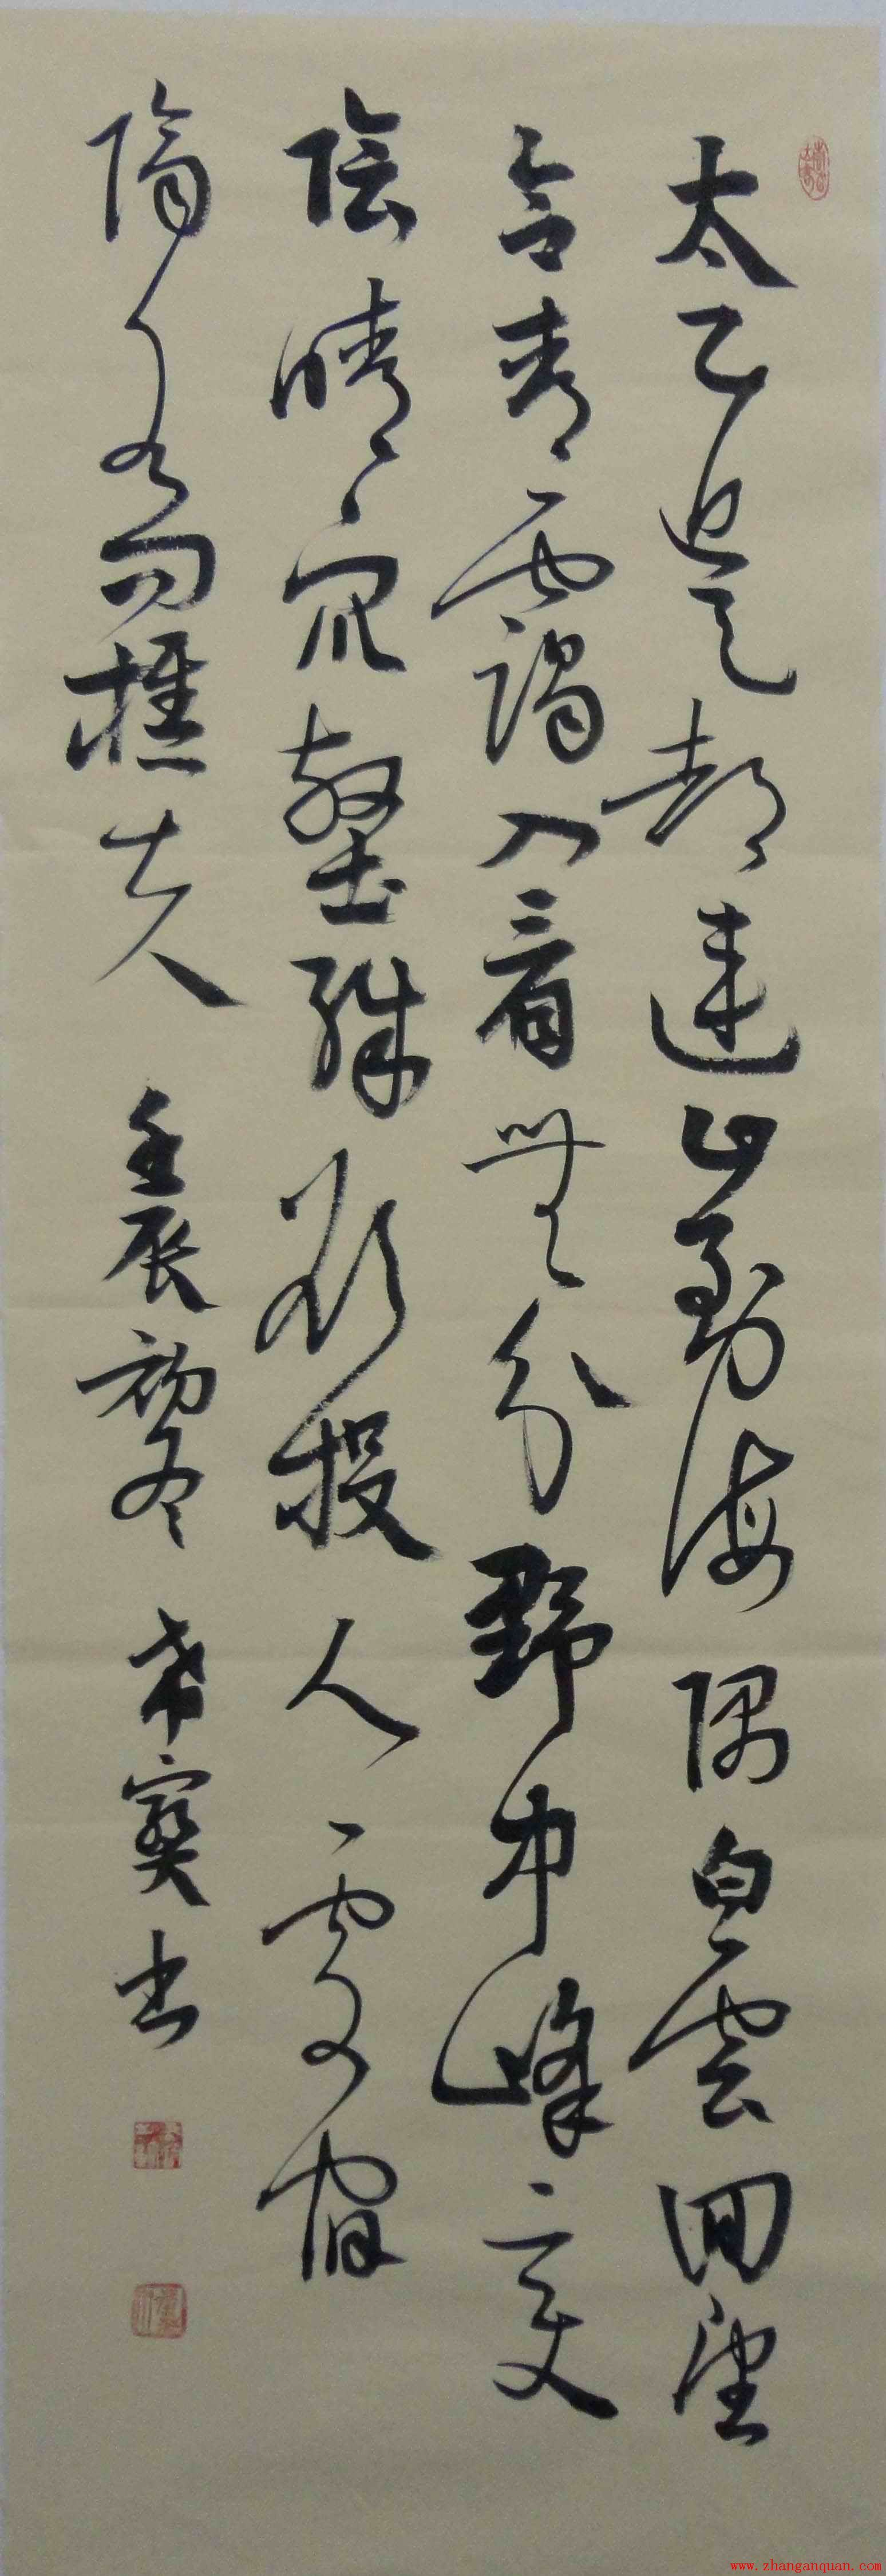 太乙近天都連山到海隅白雲回望
合青靄入看無分野中峰變
陰晴眾壑殊欲投人處宿
隔水問樵夫 壬辰初冬 书
www.zhanganquan.com